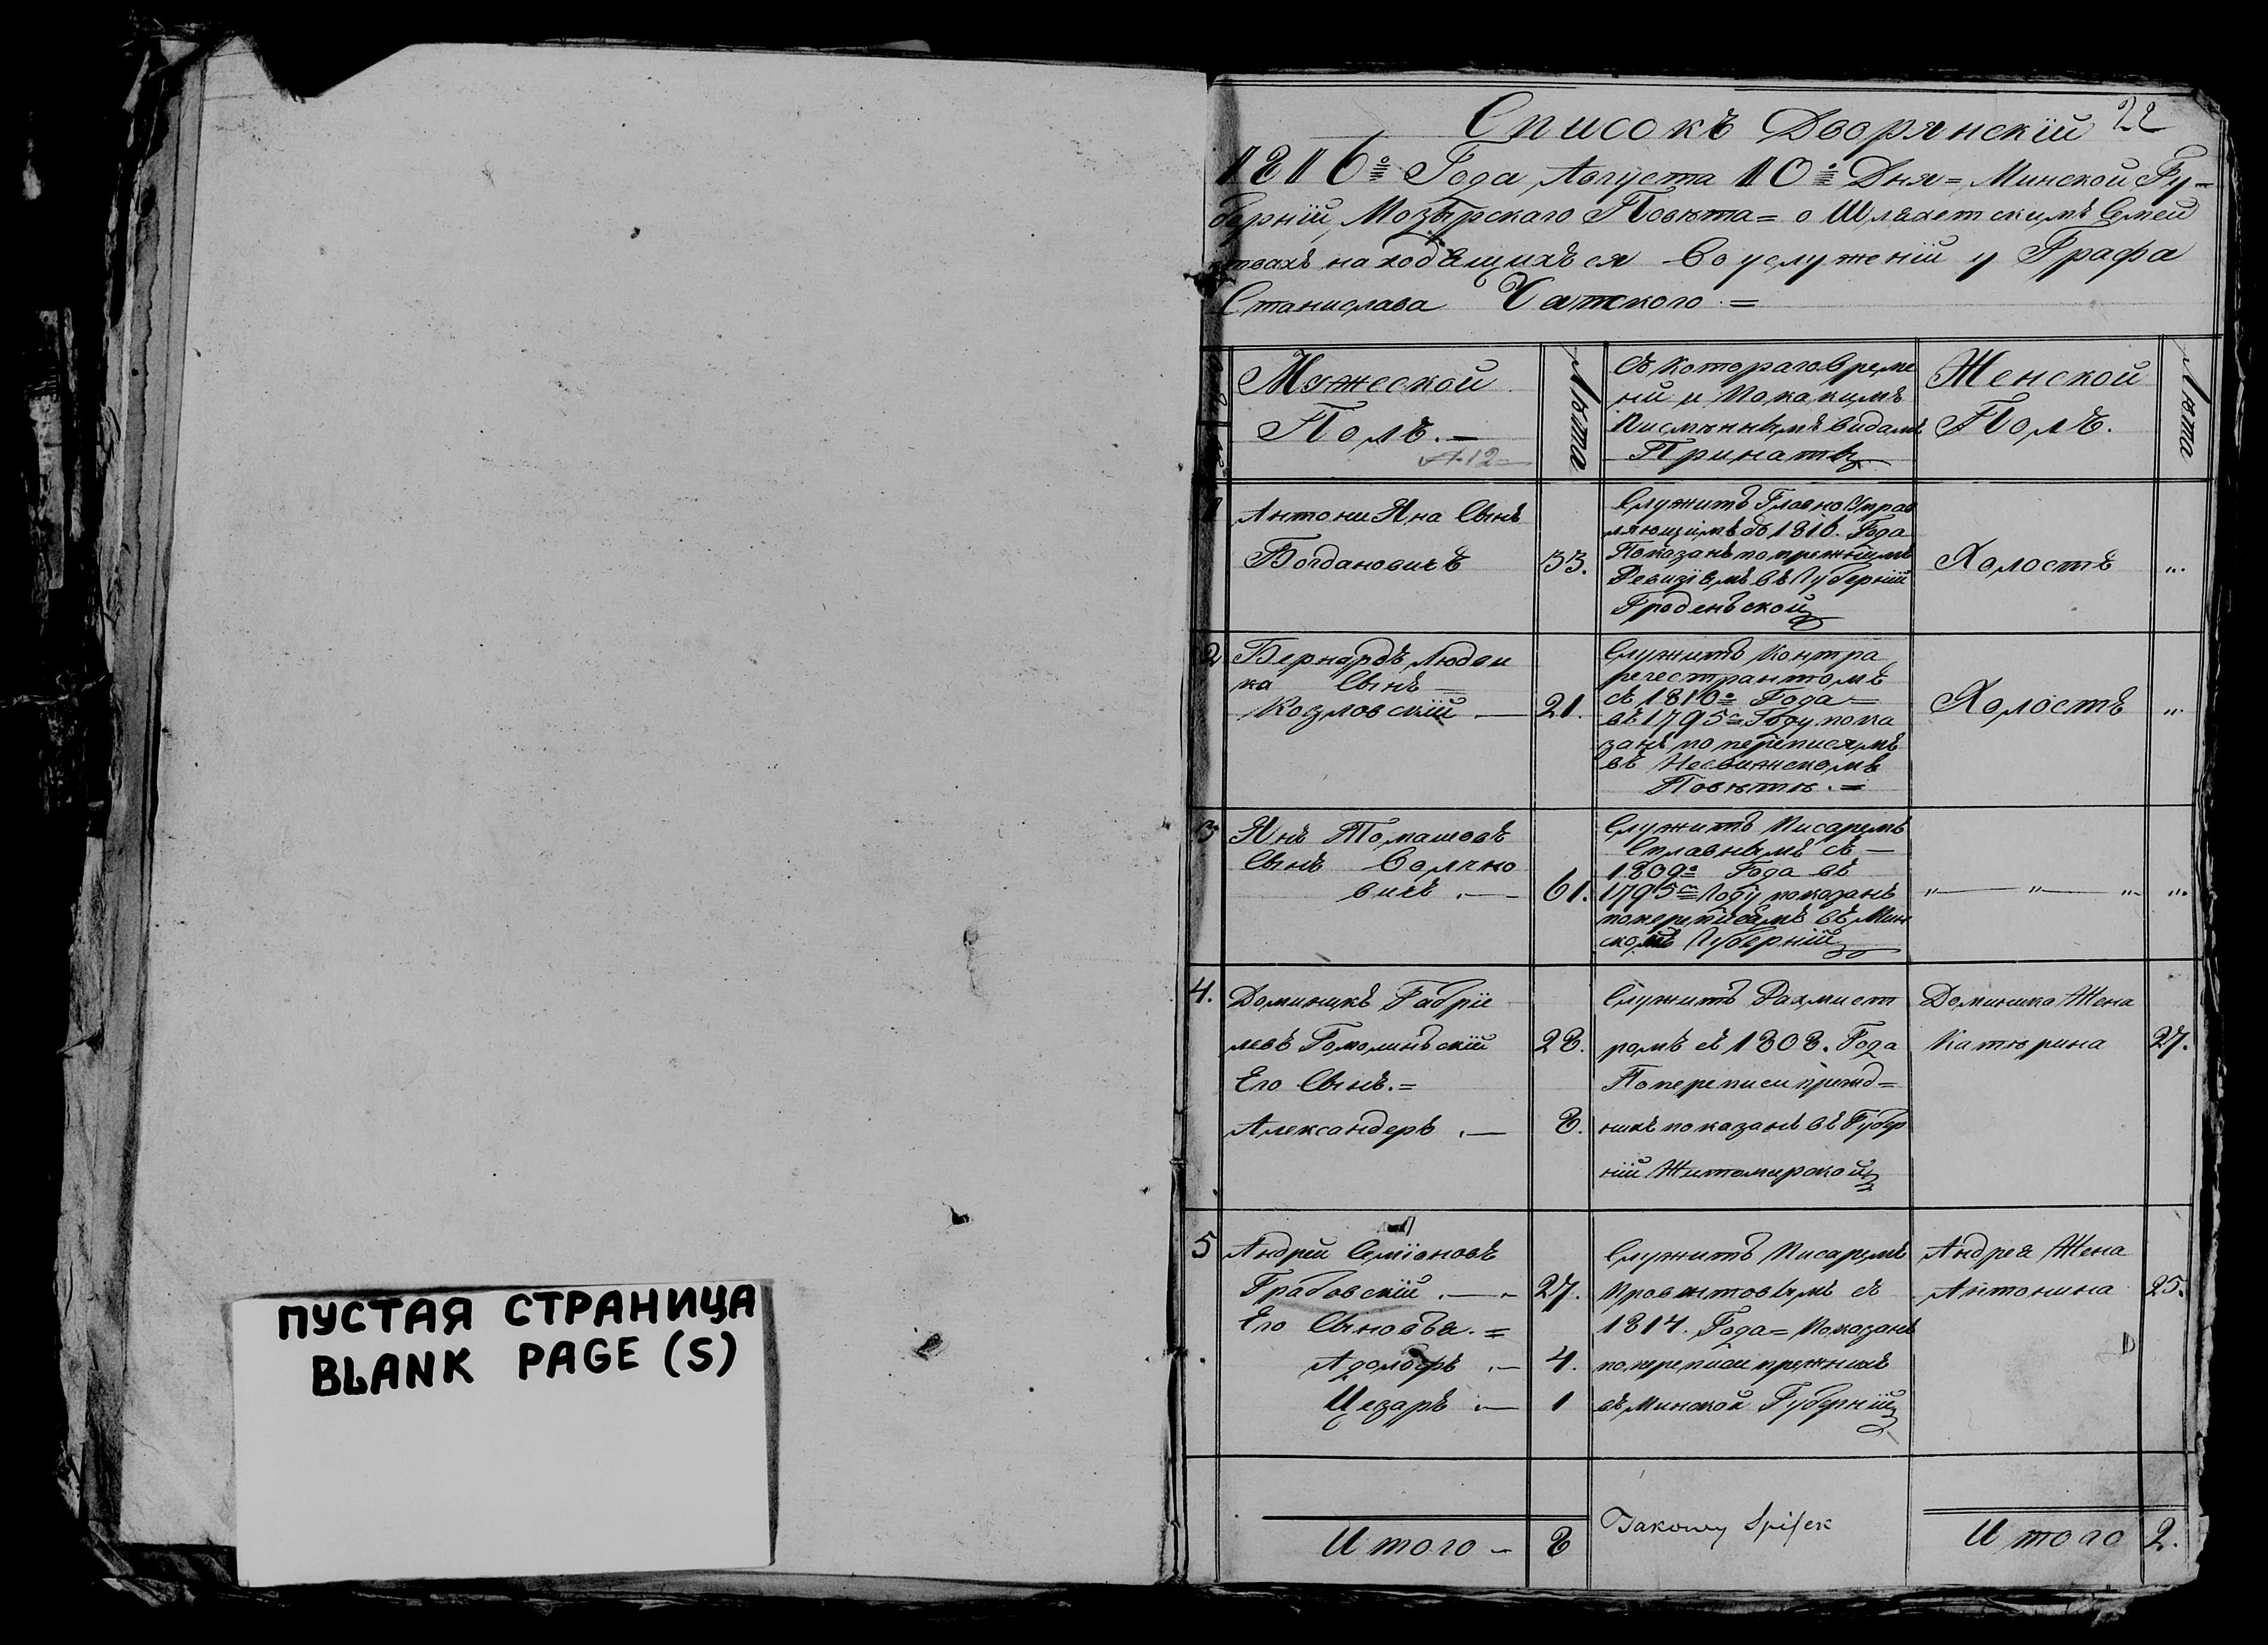 ПУСТАЯ СТРАНИЦА
BLANK PAGE (S)
22
Списокъ Дворянскій
1816º Года Августа 10º Дня = Минской Гу-
берніи, Мозырскаго Повѣта = о Шляхетскимъ Семей
ствахъ находящихъся Во услуженіи у Графа
Станислава Чатского. =
Мужеской
Полъ. —
Лѣта
Съ Котораго Време
ни и Покакимъ
Писмѣннымъ видамъ
Принаты
Женской
Полъ.
Лѣта
1
Антони Яна Сынъ
Богдановичъ
33.
Служитъ Главно Управ
ляющимъ съ 1816. Года
Показанъ попрежнимъ
Ревизіямъ въ Губерніи
Гроденьской
Холостъ
„.
2
Бернардъ Людви
ка Сынъ
Козловскій —
21.
Служитъ Контра
регестрантомъ
съ 1810º Года =
въ 1795 Году пока
занъ по переписямъ
въ Несвижскомъ
Повѣтѣ. =
Холостъ
„.
3
Янъ Томашовъ
Сынъ Волчко
вичъ . —
61.
Служитъ Писаремъ
Сплавнымъ съ —
1809º Года въ
1795 Году показанъ
попереписамъ въ Мин
ской Губерніи
„ — „ — „. „.
4.
Доминикъ Габріе
левъ Гомолинъскій
28.
Его Сынъ. =
Александеръ . —
8.
Служитъ Рахмист
ромъ съ 1808. Года
Попереписи прежд=
нихъ показанъ въ Губер
ніи Житомирской
Доминика Жена
Катѣрина
27.
5
Андрей Семіоновъ
Грабовскій . —
27.
Его Сыновья. =
Адольфъ . —
4.
Цезаръ . —
1
Служитъ Писаремъ
Провѣнтовымъ съ
1814. Года = Показанъ
попереписи прежнихъ
въ Минской Губерніи
Андрея Жена
Антонина
25.
Итого —
8
Takowy Spisek
Итого
2.